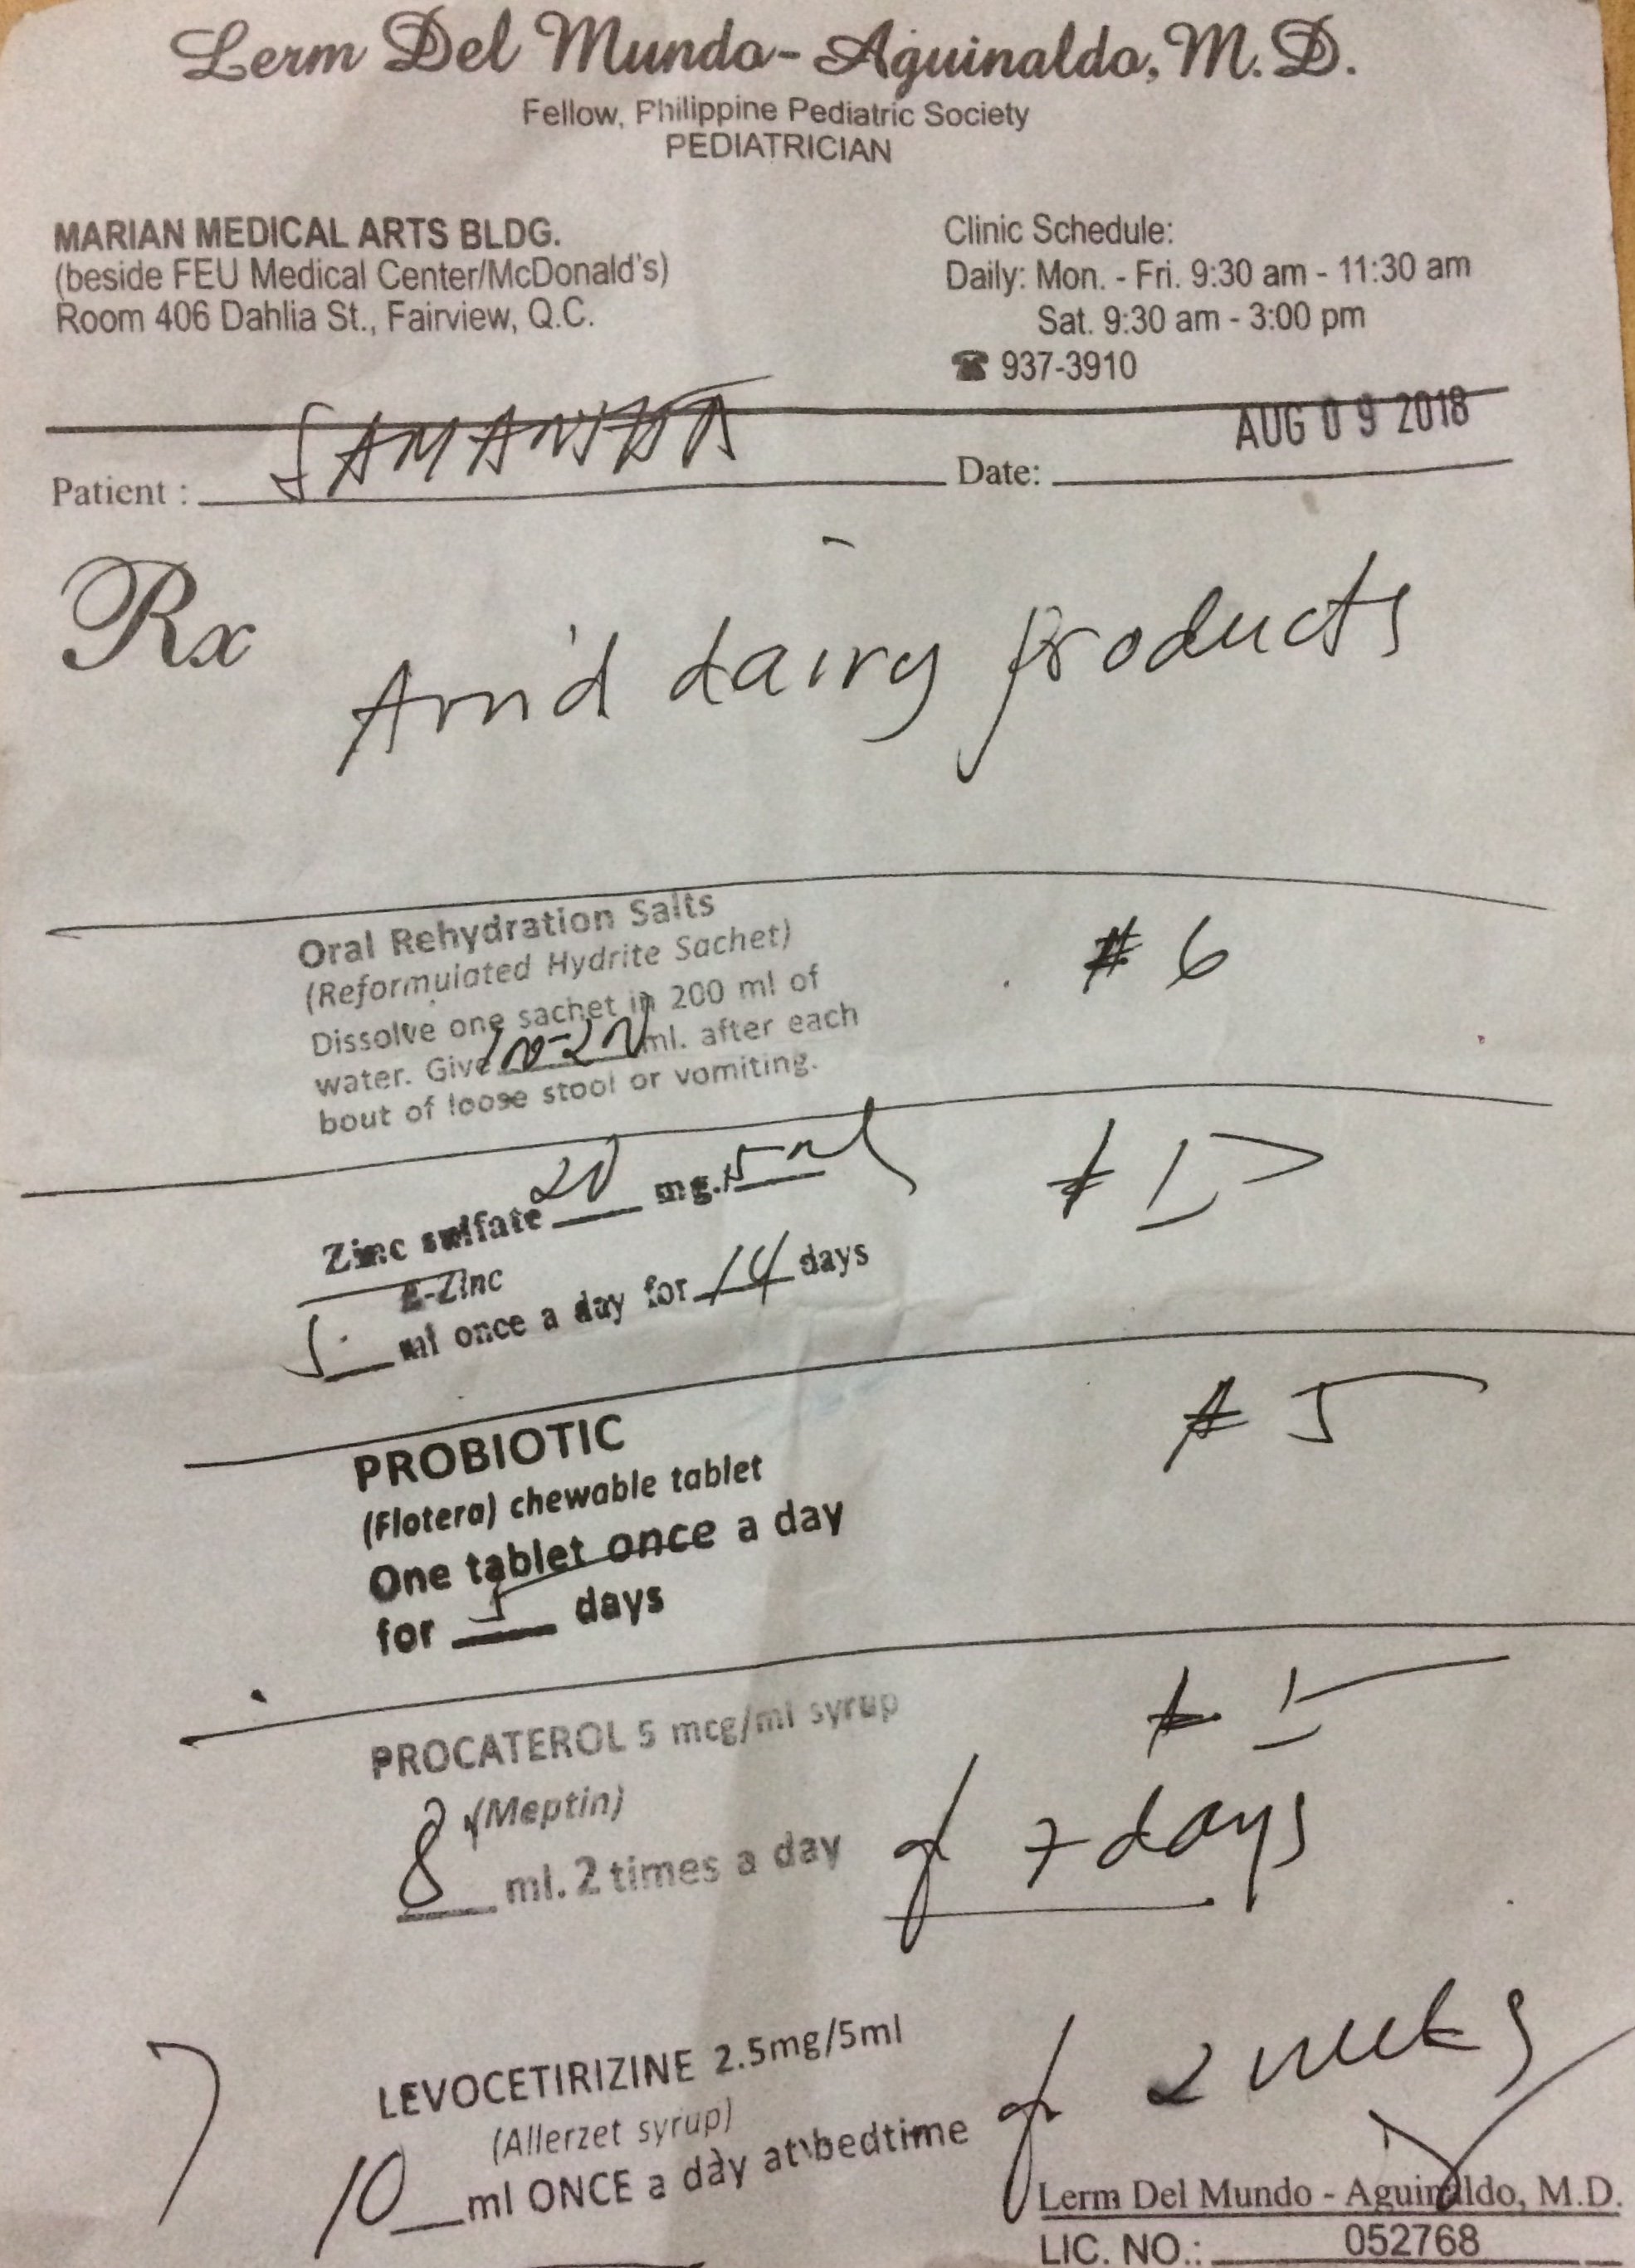 Lerm Del Mundo-Aguinaldo, M.D.
Fellow, Philippine Pediatric Society
PEDIATRICIAN
MARIAN MEDICAL ARTS BLDG.
(beside FEU Medical Center/McDonald's)
Room 406 Dahlia St., Fairview, Q.C.
Clinic Schedule:
Daily: Mon. - Fri. 9:30 am - 11:30 am
Sat. 9:30 am - 3:00 pm
☎ 937-3910
Patient : SAMANTHA Date: AUG 09 2018
Rx
Avoid dairy products
Oral Rehydration Salts # 6
(Reformulated Hydrite Sachet)
Dissolve one sachet in 200 ml of
water. Give 100-200 ml. after each
bout of loose stool or vomiting.
Zinc sulfate 20 mg. 5 ml #
E-Zinc
5 ml once a day for 14 days
PROBIOTIC # 5
(Flotera) chewable tablet
One tablet once a day
for 5 days
PROCATEROL 5 mcg/ml syrup #
(Meptin)
8 ml. 2 times a day 7 days
LEVOCETIRIZINE 2.5mg/5ml
(Allerzet syrup)
10 ml ONCE a day at bedtime 2 weeks
Lerm Del Mundo - Aguinaldo, M.D.
LIC. NO.: 052768